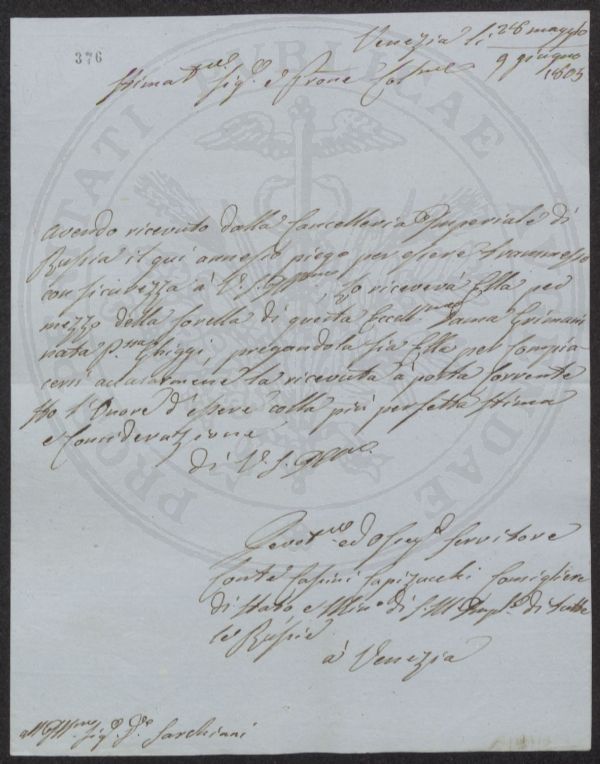 376
Venezia li 28 maggio
9 giugno
1803
Stimat.mo Sig.e e Prone Col.mo
Avendo ricevuto dalla Cancelleria Imperiale di
Russia il qui annesso piego per essere transmesso
con sicurezza à V. S. Ill.ma, lo riceverà Ella per
mezzo della sorella di questa Eccell.ma Dama Grimani
nata P.ssa Ghiggi, pregandola sia Ella per compia
cersi accusarmene la ricevuta à posta corrente
Ho l'Onore d'essere colla più perfetta stima
e Considerazione
di V. S. Ill.ma
Devot.mo ed Osseq.o Servitore
Conte Cassini Capizucchi Consigliere
di Stato e Min.o di S. M. Imp.le di tutte
le Russie
à Venezia
All Ill.mo Sig.e D.e Sarchiani
PIETATI PUBLICAE